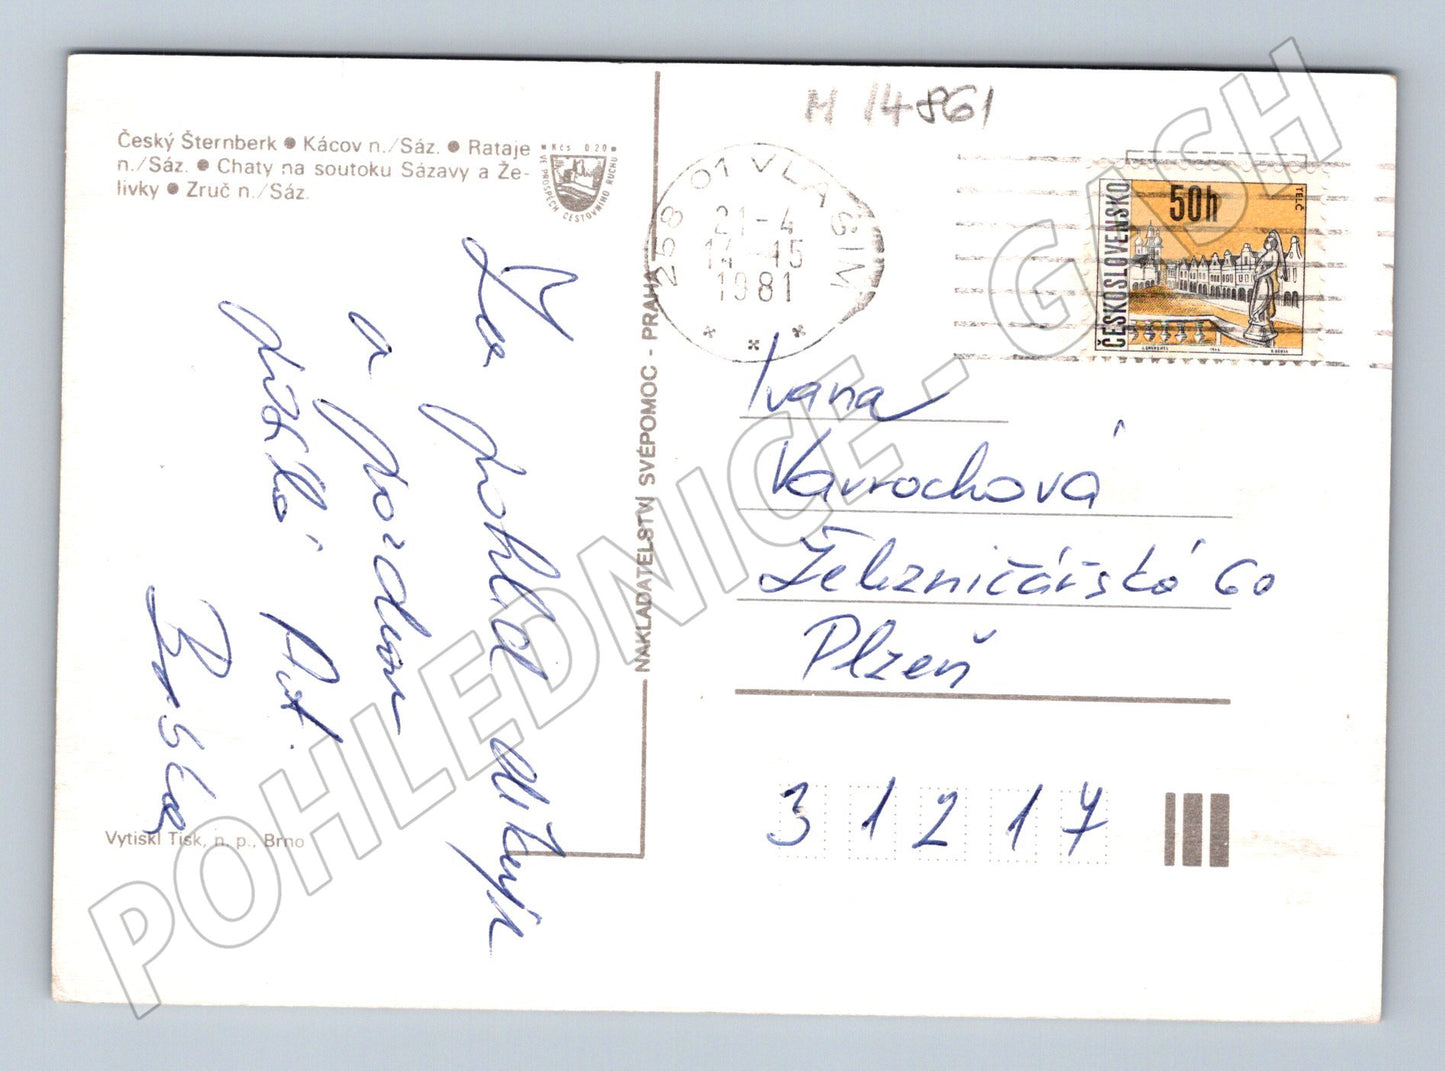 M 14861
Český Šternberk ● Kácov n./Sáz. ● Rataje
n./Sáz. ● Chaty na soutoku Sázavy a Že-
livky ● Zruč n./Sáz.
Kčs 0.20
VE PROSPĚCH CESTOVNÍHO RUCHU
258 01 VLAŠIM
21-4
14-15
1981
ČESKOSLOVENSKO
50h
TELČ
Za pohled děkuje
a pozdrav
posílá Pat.
NAKLADATELSTVÍ SVÉPOMOC - PRAHA
Ivana
Vavrochová
Železničářská 60
Plzeň
31217
Vytiskl Tisk, n. p., Brno
POHLEDNICE - GASH